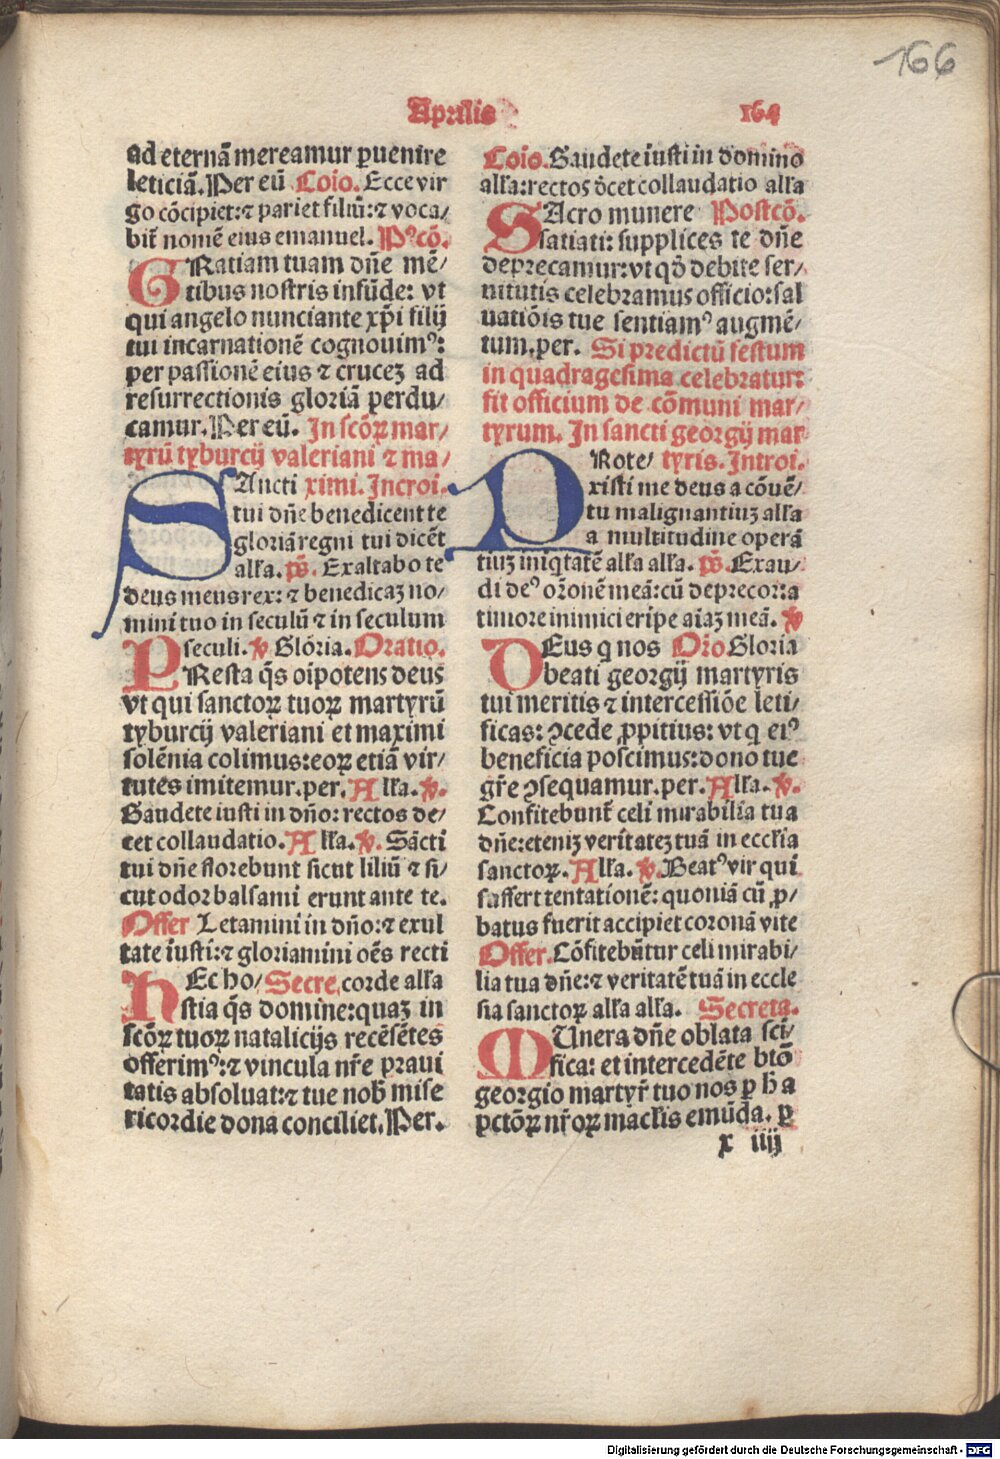 166
Aprilis
164
ad eternā mereamur ꝑuenire
leticiā. Per eū Coı̄o. Ecce vir
go cōcipiet: ⁊ pariet filiū: ⁊ voca/
bit̄ nomē eius emanuel. Pꝰcō.
GRatiam tuam dn̄e mē/
tibus nostris infūde: vt
qui angelo nunciante xp̄i filij
tui incarnationē cognouimꝰ:
per passionē eius ⁊ crucez ad
resurrectionis gloriā perdu/
camur. Per eū. In scōꝝ mar/
tyrū tyburcij valeriani ⁊ ma/
SAncti ximi. Introi.
tui dn̄e benedicent te
gloriā regni tui dicēt
alľa. p̄s. Exaltabo te
deus meus rex: ⁊ benedicaz no/
mini tuo in seculū ⁊ in seculum
seculi. ꝟ. Glória. Oratio.
PResta q̄s oı̄potens deus
vt qui sanctoꝝ tuoꝝ martyrū
tyburcij valeriani et maximi
solēnia colimus: eoꝝ etiā vir/
tutes imitemur. per. Alľa. ꝟ.
Gaudete iusti in dn̄o: rectos de/
cet collaudatio. Alľa. ꝟ. Sācti
tui dn̄e florebunt sicut liliū ⁊ si/
cut odor balsami erunt ante te.
Offer Letamini in dn̄o: ⁊ exul
tate iusti: ⁊ gloriamini oēs recti
HEc ho/ Secre. corde alľa
stia q̄s domine: quaz in
scōꝝ tuoꝝ natalicijs recēsētes
offerimꝰ: ⁊ vincula nr̄e praui
tatis absoluat: ⁊ tue nob̄ mise
ricordie dona conciliet. Per.
Coı̄o. Gaudete iusti in domino
alľa: rectos d̄cet collaudatio alľa
SAcro munere Postcō.
satiati: supplices te dn̄e
deprecamur: vt qd̄ debite ser/
uitutis celebramus officio: sal
uatiōis tue sentiamꝰ augmē/
tum. per. Si predictū festum
in quadragesima celebratur:
fit officium de cōmuni mar/
tyrum. In sancti georgij mar
PRote/ tyris. Introi.
xisti me deus a cōuē/
tu malignantiuz alľa
a multitudine operā
tiuz iniq̄tatē alľa alľa. p̄s. Exau/
di deꝰ or̄onē meā: cū deprecor: a
timore inimici eripe aı̄az meā. ꝟ
DEus q nos Or̄o Gloria
beati georgij martyris
tui meritis ⁊ intercessiōe leti/
ficas: ꝯcede ꝓpitius: vt q eiꝰ
beneficia poscimus: dono tue
gr̄e ꝯsequamur. per. Alľa. ꝟ.
Confitebunt̄ celi mirabilia tua
dn̄e: etenīz veritatez tuā in ecclesia
sanctoꝝ. Alľa. ꝟ. Beatꝰ vir qui
suffert tentationē: quoniā cū ꝓ/
batus fuerit accipiet coronā vite
Offer. Cōfitebūtur celi mirabi/
lia tua dn̄e: ⁊ veritatē tuā in eccle
sia sanctoꝝ alľa alľa. Secreta.
MUnera dn̄e oblata scı̄/
fica: et intercedēte btō
georgio martyr̄ tuo nos ꝑ h̄ a
pctōꝝ nr̄oꝝ macľis emūda. ꝑ
x iiij
Digitalisierung gefördert durch die Deutsche Forschungsgemeinschaft - DFG